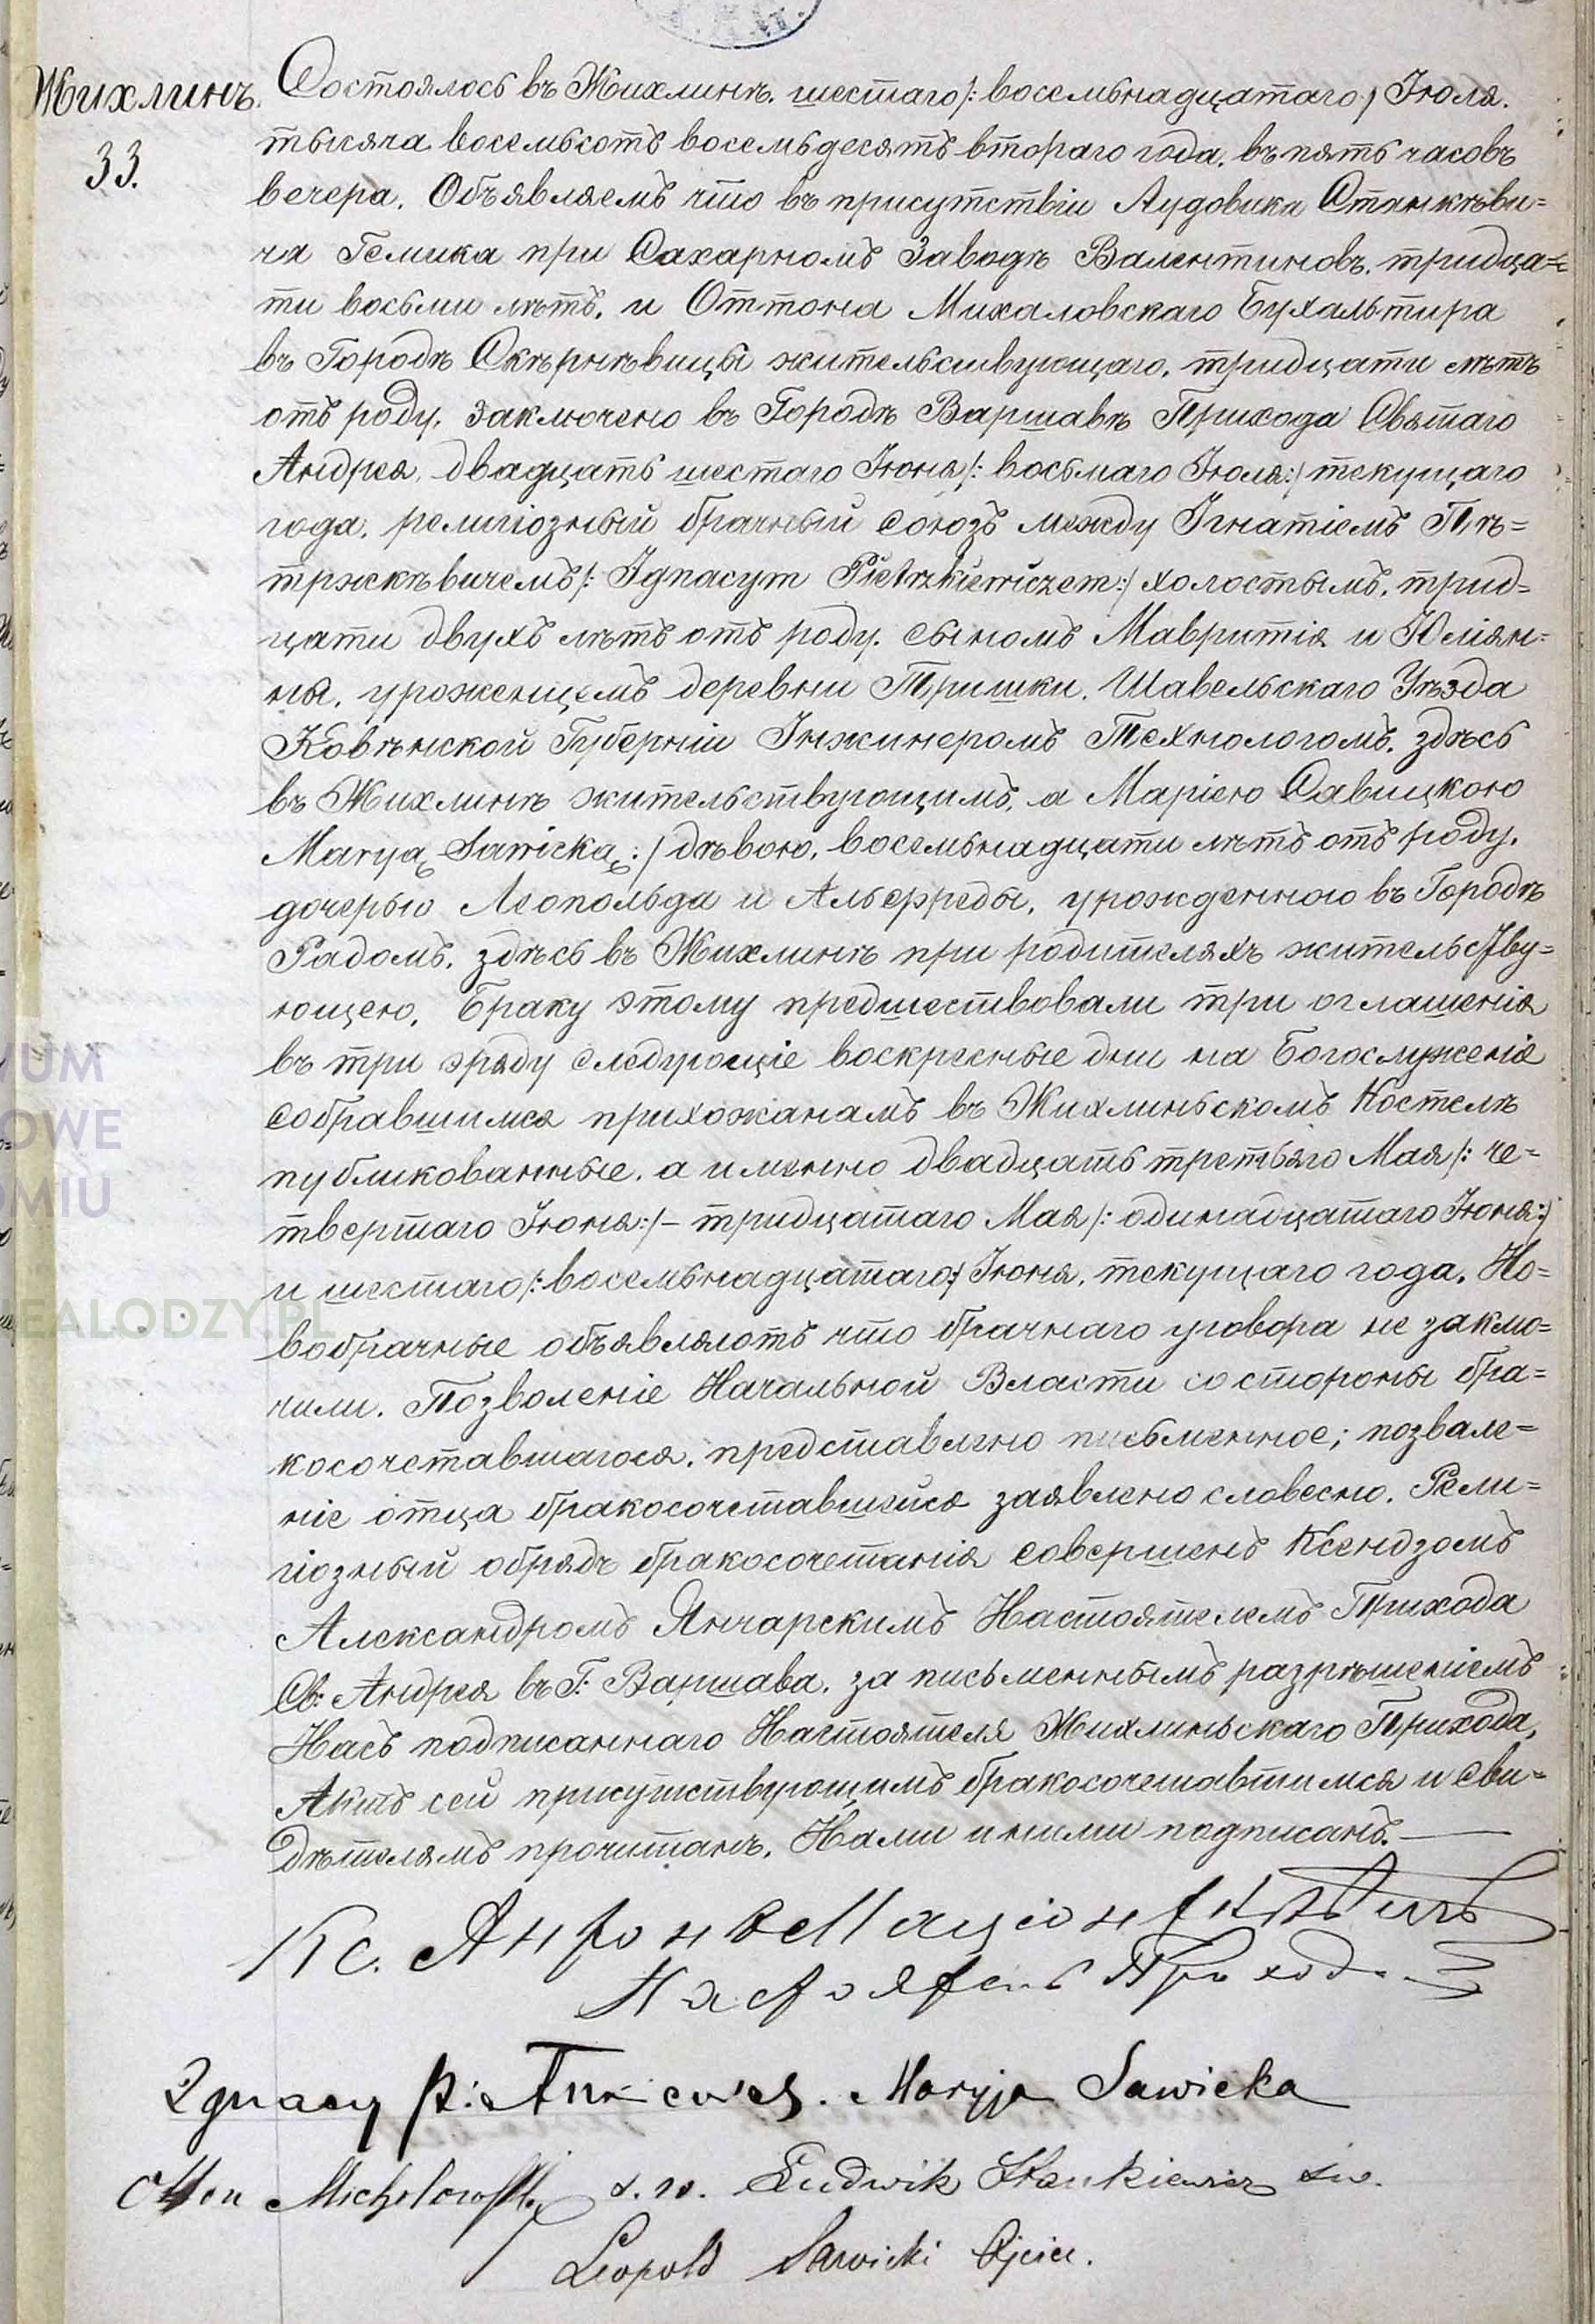 Жихлинъ.
33.
Состоялось въ Жихлинѣ, шестаго /: восемьнадцатаго / Іюля.
тысяча восемьсотъ восемьдесятъ втораго года, въ пять часовъ
вечера. Объявляемъ что въ присутствіи Лудовика Станкѣви=
ча Гемика при Сахарномъ Заводѣ Валентиновъ, тридца=
ти восьми лѣтъ, и Оттона Михаловскаго Бухальтира
въ Городѣ Скѣрнѣвицы жительсивующаго, тридцати лѣтъ
отъ роду, заключено въ Городѣ Варшавѣ Прихода Святаго
Андрея, двадцать шестаго Іюня /: восьмаго Іюля :/ текущаго
года, религіозный брачный союзъ между Игнатіемъ Пѣ=
тржкѣвичемъ /: Ignacym Pietrzkiewiczem :/ холостымъ, трид=
цати двухъ лѣтъ отъ роду, сыномъ Мавритія и Юліян=
ны, уроженцемъ деревни Тришки, Шавельскаго Уѣзда
Ковѣнской Губерніи Инжинеромъ Технологомъ, здѣсь
въ Жихлинѣ жительствующимъ, а Маріею Савицкою
Maryą Sawicką :/ дѣвою, восемьнадцати лѣтъ отъ роду,
дочерью Леопольда и Альфреды, урожденною въ Городѣ
Радомъ, здѣсь въ Жихлинѣ при родителяхъ жительству=
ющею. Браку этому предшествовали три оглашенія
въ три эряду следующіе воскресные дни на Богослуженіе
собравшимся прихожанамъ въ Жихлиньскомъ Костелѣ
публикованные, а именно двадцать третьяго Мая /: че=
твертаго Іюня :/ — тридцатаго Мая /: одинадцатаго Іюня :/
и шестаго /: восемьнадцатаго :/ Іюня, текущаго года. Но=
вобрачные объявляютъ что брачнаго уговора не заклю=
чили. Позволеніе Начальной Власти со стороны бра=
косочетавшагося, представлено письменное; позвале=
ніе отца бракосочетавшейся заявлено словесно. Рели=
гіозный обрядъ бракосочетанія совершенъ Ксендзомъ
Александромъ Янчарскимъ Настоятелемъ Прихода
Св: Андрея въ Г: Варшава, за письменнымъ разрѣшеніемъ
Насъ подписаннаго Настоятеля Жихлиньскаго Прихода,
Актъ сей присутствующимъ бракосочетавшимся и сви=
дѣтелямъ прочитанъ, Нами и ними подписанъ. —
Кс. Антон
Настоятель Прихода
Ignacy Pietrkiewicz. Maryja Sawicka
Otton Michałowski ś. w. Ludwik Stankiewicz św.
Leopold Sawicki Ojciec.